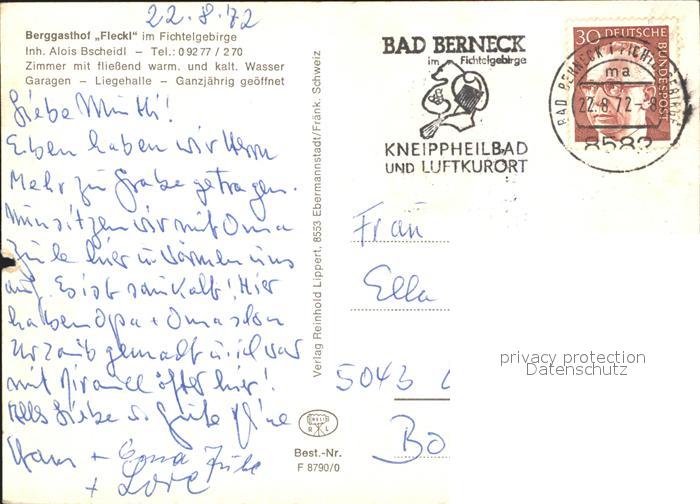 22.8.72
Berggasthof „Fleckl" im Fichtelgebirge
Inh. Alois Bscheidl – Tel.: 0 92 77 / 2 70
Zimmer mit fließend warm. und kalt. Wasser
Garagen – Liegehalle – Ganzjährig geöffnet
Liebe Mutti!
Eben haben wir Herrn
Mehr zu Grabe getragen.
Nun sitzen wir mit Oma
Zühle hier u. wärmen uns
auf. Es ist saukalt! Hier
haben Opa + Oma schon
Urlaub gemacht u. ich war
mit öfter hier!
Alles Liebe u. Gute
Hans + Oma Zühle
+ Lore
Verlag Reinhold Lippert, 8553 Ebermannstadt/Fränk. Schweiz
R L
Best.-Nr.
F 8790/0
BAD BERNECK
im Fichtelgebirge
KNEIPPHEILBAD
UND LUFTKURORT
BAD BERNECK I. FICHTELGEBIRGE
ma
22.8.72-8
8582
30 DEUTSCHE
BUNDESPOST
Frau
Ella
5043
Bo
privacy protection
Datenschutz